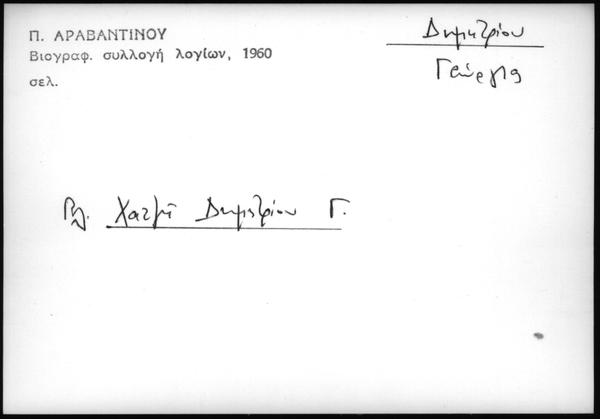 Π. ΑΡΑΒΑΝΤΙΝΟΥ
Βιογραφ. συλλογή λογίων, 1960
σελ.
Δημητρίου
Γεώργιος
Βλ. Χατζή Δημητρίου Γ.